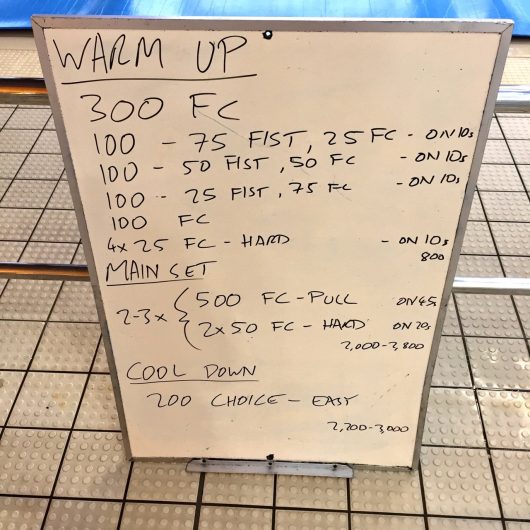 WARM UP
300 FC
100 - 75 FIST, 25 FC - ON 10s
100 - 50 FIST, 50 FC - ON 10s
100 - 25 FIST, 75 FC - ON 10s
100 FC
4x25 FC - HARD - ON 10s
800
MAIN SET
2-3x { 500 FC - PULL ON 45s
2x50 FC - HARD ON 20s
2,000-3,800
COOL DOWN
200 CHOICE - EASY
2,200-3,000